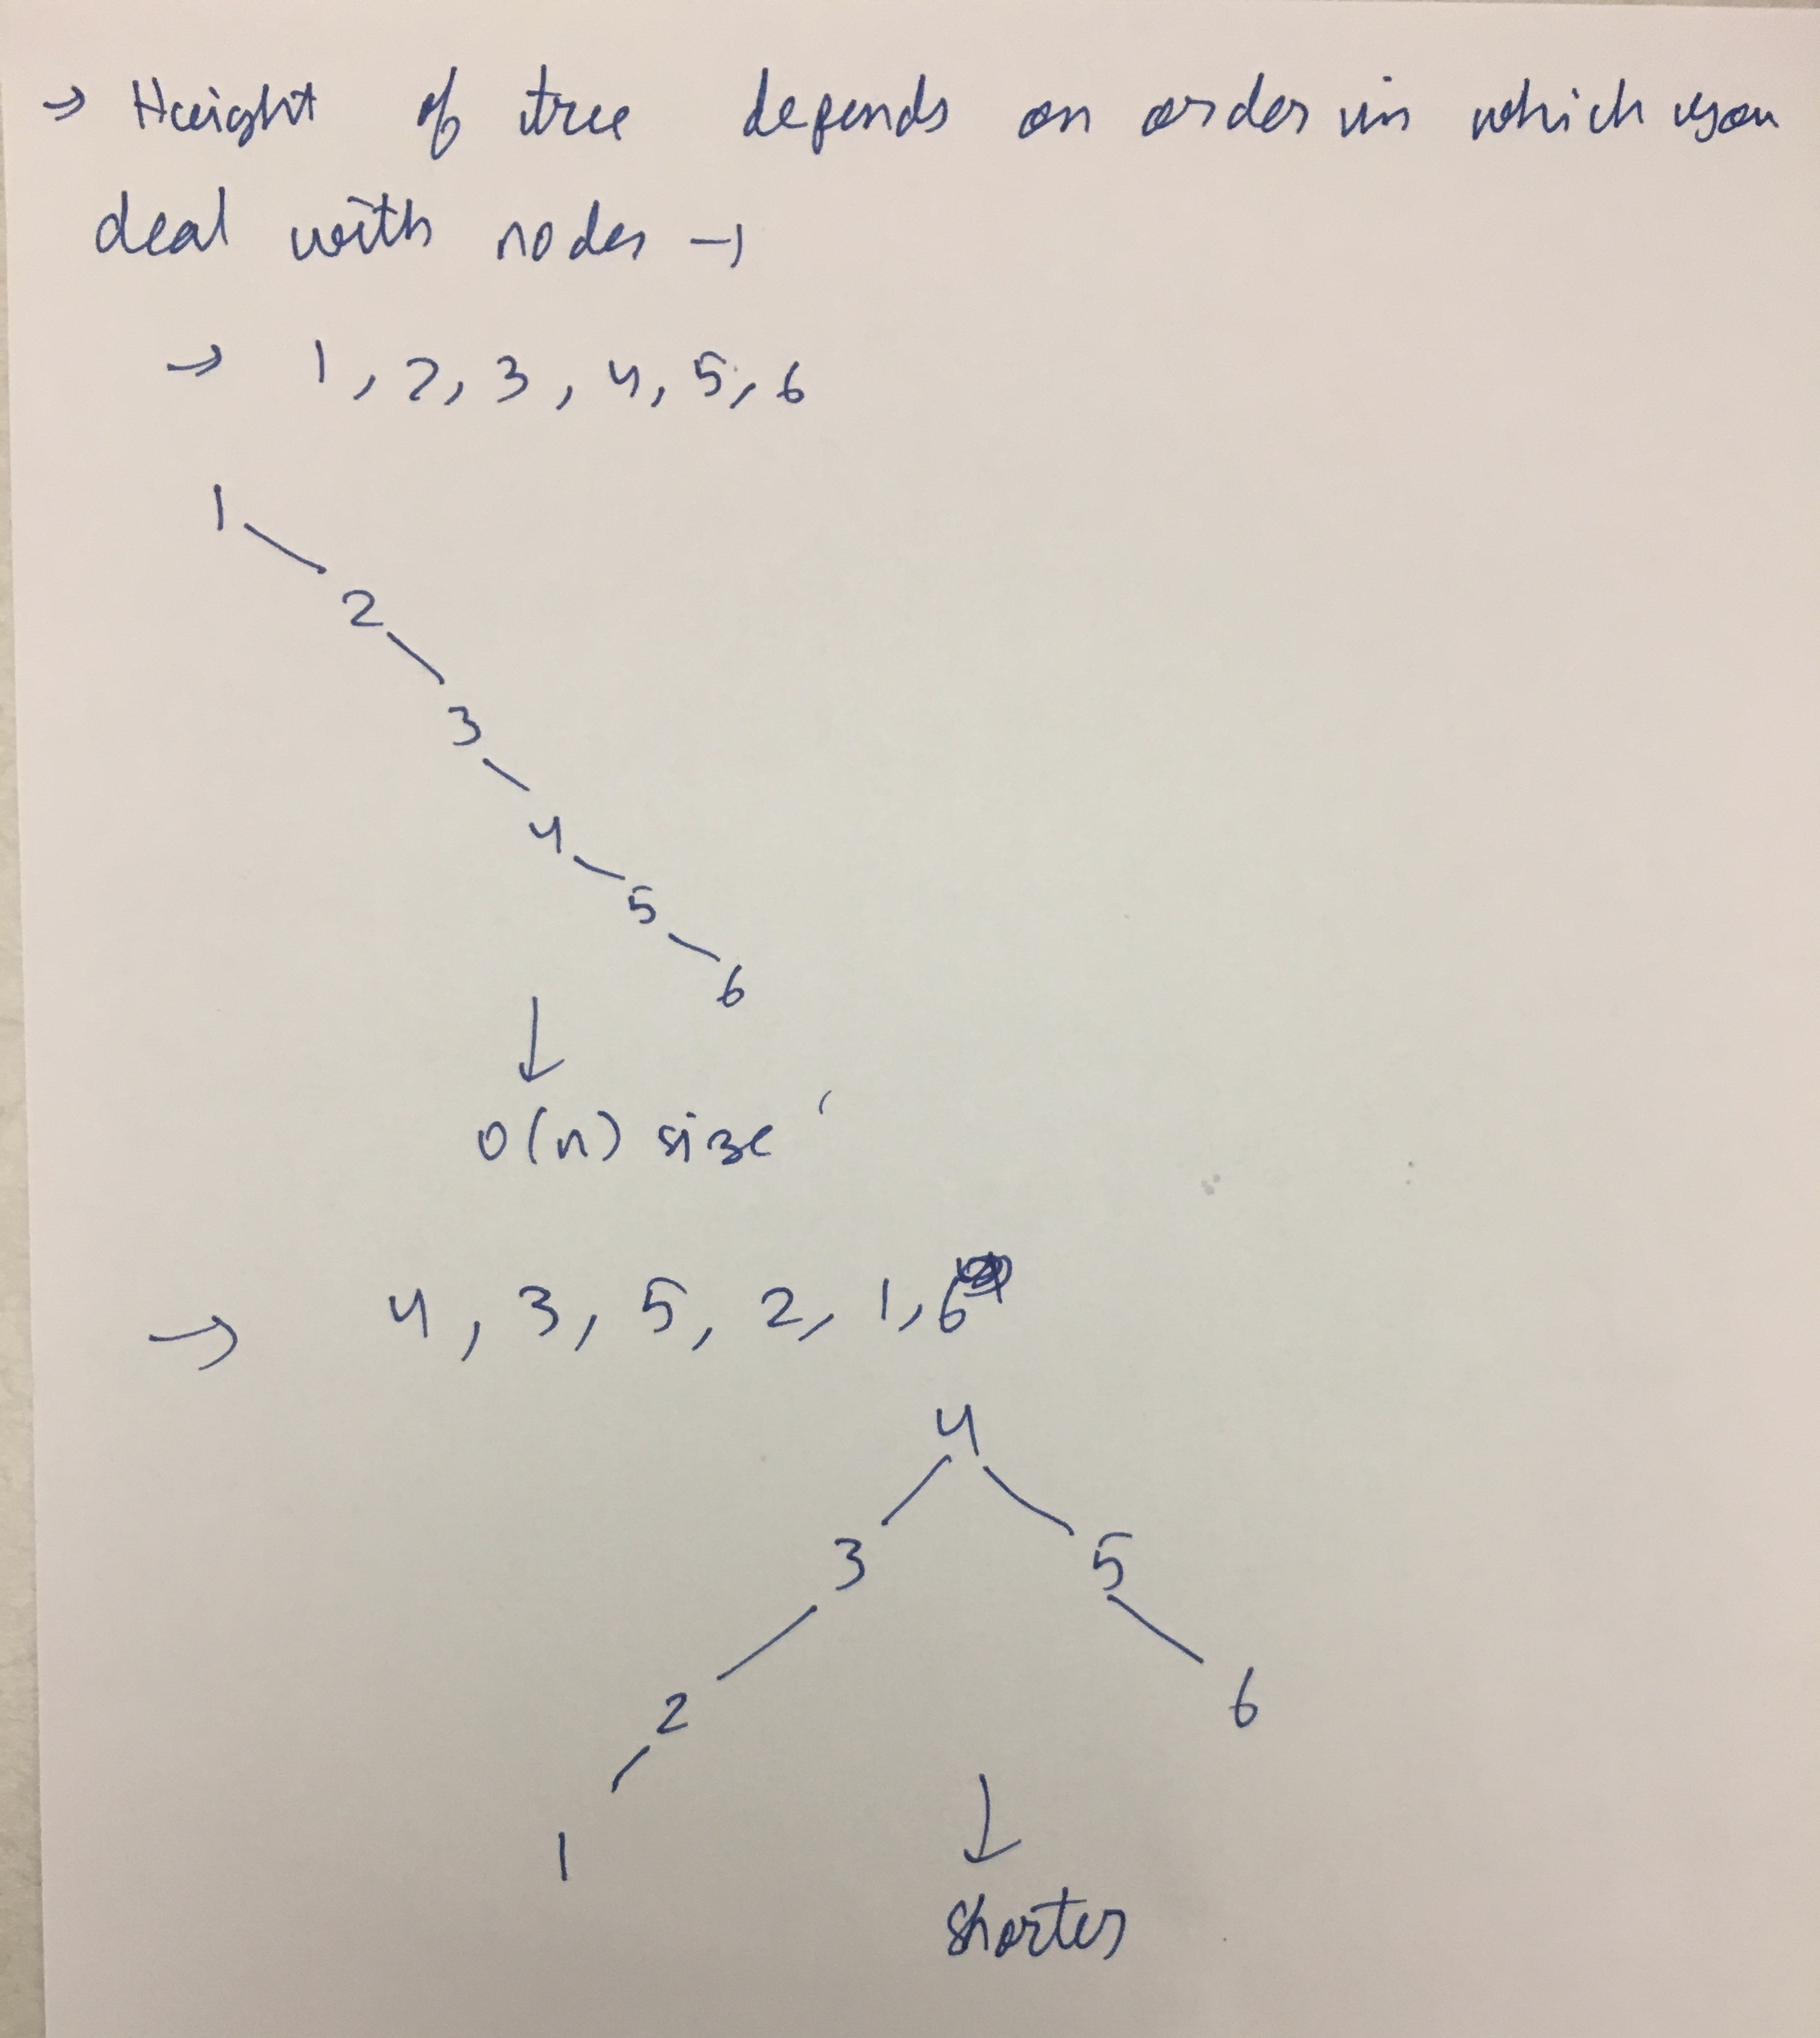 → Height of tree depends on order in which you
deal with nodes →
→ 1, 2, 3, 4, 5, 6
1
2
3
4
5
6
↓
O(n) size
→ 4, 3, 5, 2, 1, 6
4
3 5
2 6
1
↓
Shorter